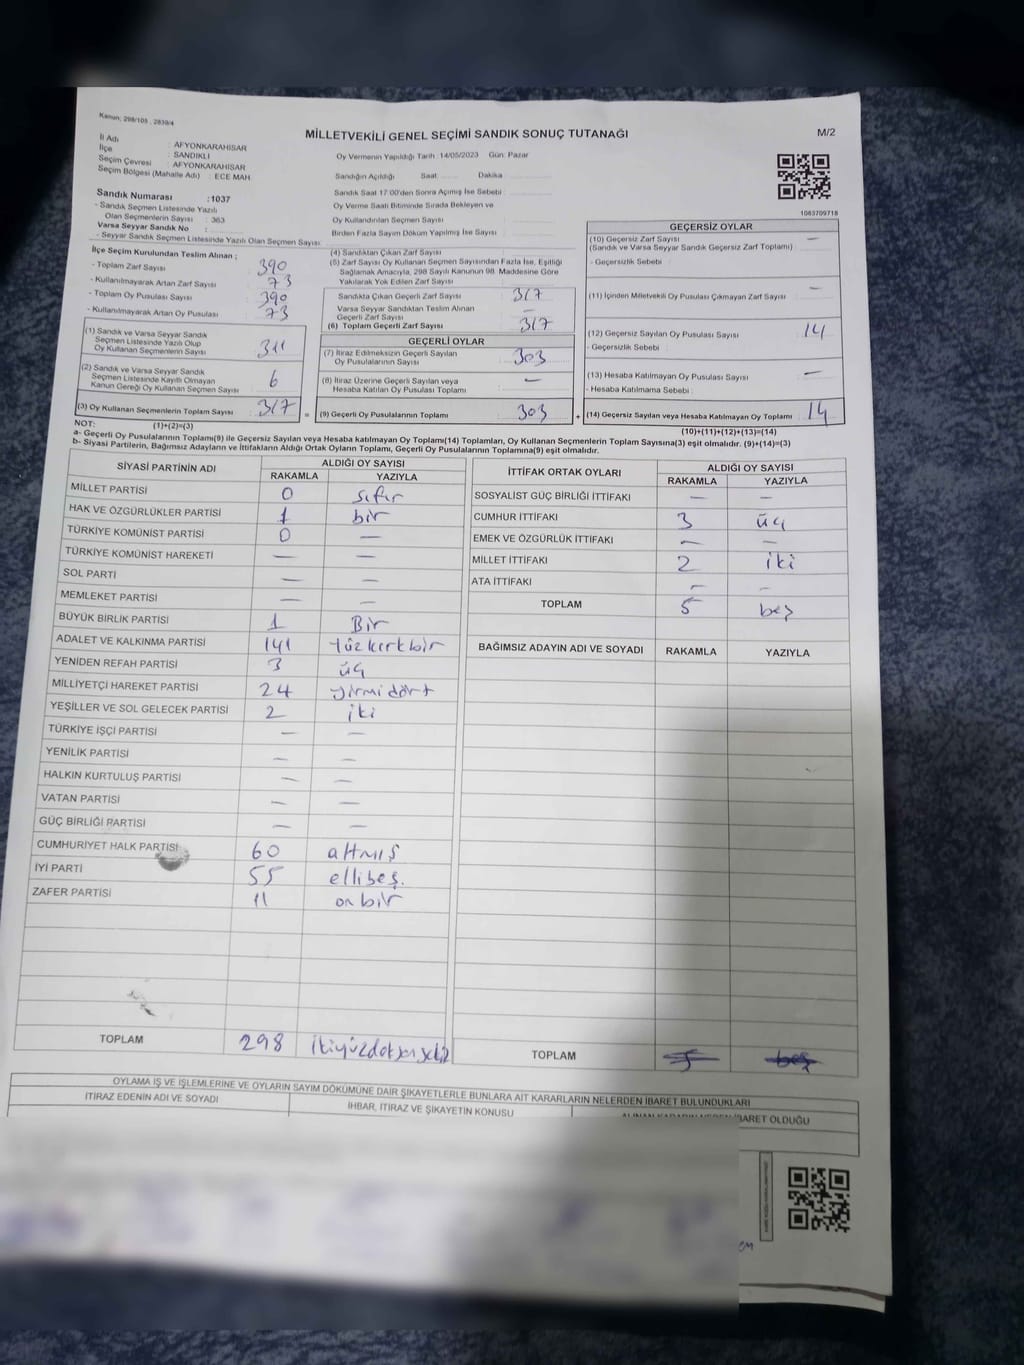 Kanun; 298/105 , 2839/4
MİLLETVEKİLİ GENEL SEÇİMİ SANDIK SONUÇ TUTANAĞI
M/2
İl Adı : AFYONKARAHİSAR
İlçe : SANDIKLI
Seçim Çevresi : AFYONKARAHİSAR
Seçim Bölgesi (Mahalle Adı) : ECE MAH
Oy Vermenin Yapıldığı Tarih :14/05/2023 Gün: Pazar
Sandığın Açıldığı Saat: Dakika
Sandık Saat 17:00'den Sonra Açılmış İse Sebebi :
Oy Verme Saati Bitiminde Sırada Bekleyen ve
Oy Kullandırılan Seçmen Sayısı
Birden Fazla Sayım Döküm Yapılmış İse Sayısı
Sandık Numarası :1037
- Sandık Seçmen Listesinde Yazılı
Olan Seçmenlerin Sayısı : 363
Varsa Seyyar Sandık No :
- Seyyar Sandık Seçmen Listesinde Yazılı Olan Seçmen Sayısı:
1083709718
İlçe Seçim Kurulundan Teslim Alınan ;
- Toplam Zarf Sayısı 390
- Kullanılmayarak Artan Zarf Sayısı 73
- Toplam Oy Pusulası Sayısı 390
- Kullanılmayarak Artan Oy Pusulası 73
(1) Sandık ve Varsa Seyyar Sandık
Seçmen Listesinde Yazılı Olup
Oy Kullanan Seçmenlerin Sayısı 311
(2) Sandık ve Varsa Seyyar Sandık
Seçmen Listesinde Kayıtlı Olmayan
Kanun Gereği Oy Kullanan Seçmen Sayısı 6
(3) Oy Kullanan Seçmenlerin Toplam Sayısı 317
(4) Sandıktan Çıkan Zarf Sayısı
(5) Zarf Sayısı Oy Kullanan Seçmen Sayısından Fazla İse, Eşitliği
Sağlamak Amacıyla, 298 Sayılı Kanunun 98. Maddesine Göre
Yakılarak Yok Edilen Zarf Sayısı
Sandıkta Çıkan Geçerli Zarf Sayısı 317
Varsa Seyyar Sandıktan Teslim Alınan
Geçerli Zarf Sayısı —
(6) Toplam Geçerli Zarf Sayısı 317
GEÇERLİ OYLAR
(7) İtiraz Edilmeksizin Geçerli Sayılan
Oy Pusulalarının Sayısı 303
(8) İtiraz Üzerine Geçerli Sayılan veya
Hesaba Katılan Oy Pusulası Toplamı —
= (9) Geçerli Oy Pusulalarının Toplamı 303
GEÇERSİZ OYLAR
(10) Geçersiz Zarf Sayısı —
(Sandık ve Varsa Seyyar Sandık Geçersiz Zarf Toplamı)
- Geçersizlik Sebebi :
(11) İçinden Milletvekili Oy Pusulası Çıkmayan Zarf Sayısı —
(12) Geçersiz Sayılan Oy Pusulası Sayısı 14
- Geçersizlik Sebebi :
(13) Hesaba Katılmayan Oy Pusulası Sayısı —
- Hesaba Katılmama Sebebi :
+ (14) Geçersiz Sayılan veya Hesaba Katılmayan Oy Toplamı 14
NOT: (1)+(2)=(3) (10)+(11)+(12)+(13)=(14)
a- Geçerli Oy Pusulalarının Toplamı(9) ile Geçersiz Sayılan veya Hesaba katılmayan Oy Toplamı(14) Toplamları, Oy Kullanan Seçmenlerin Toplam Sayısına(3) eşit olmalıdır. (9)+(14)=(3)
b- Siyasi Partilerin, Bağımsız Adayların ve İttifakların Aldığı Ortak Oyların Toplamı, Geçerli Oy Pusulalarının Toplamına(9) eşit olmalıdır.
SİYASİ PARTİNİN ADI ALDIĞI OY SAYISI
RAKAMLA YAZIYLA
MİLLET PARTİSİ 0 sıfır
HAK VE ÖZGÜRLÜKLER PARTİSİ 1 bir
TÜRKİYE KOMÜNİST PARTİSİ 0 —
TÜRKİYE KOMÜNİST HAREKETİ — —
SOL PARTİ — —
MEMLEKET PARTİSİ — —
BÜYÜK BİRLİK PARTİSİ 1 Bir
ADALET VE KALKINMA PARTİSİ 141 Yüzkırkbir
YENİDEN REFAH PARTİSİ 3 üç
MİLLİYETÇİ HAREKET PARTİSİ 24 yirmidört
YEŞİLLER VE SOL GELECEK PARTİSİ 2 iki
TÜRKİYE İŞÇİ PARTİSİ — —
YENİLİK PARTİSİ — —
HALKIN KURTULUŞ PARTİSİ — —
VATAN PARTİSİ — —
GÜÇ BİRLİĞİ PARTİSİ — —
CUMHURİYET HALK PARTİSİ 60 altmış
İYİ PARTİ 55 ellibeş.
ZAFER PARTİSİ 11 onbir
TOPLAM 298 ikiyüzdoksansekiz
İTTİFAK ORTAK OYLARI ALDIĞI OY SAYISI
RAKAMLA YAZIYLA
SOSYALİST GÜÇ BİRLİĞİ İTTİFAKI — —
CUMHUR İTTİFAKI 3 üç
EMEK VE ÖZGÜRLÜK İTTİFAKI — —
MİLLET İTTİFAKI 2 iki
ATA İTTİFAKI — —
TOPLAM 5 beş
BAĞIMSIZ ADAYIN ADI VE SOYADI RAKAMLA YAZIYLA
TOPLAM 5 beş
OYLAMA İŞ VE İŞLEMLERİNE VE OYLARIN SAYIM DÖKÜMÜNE DAİR ŞİKAYETLERLE BUNLARA AİT KARARLARIN NELERDEN İBARET BULUNDUKLARI
İTİRAZ EDENİN ADI VE SOYADI
İHBAR, İTİRAZ VE ŞİKAYETİN KONUSU
ALINAN KARARIN NEDEN İBARET OLDUĞU